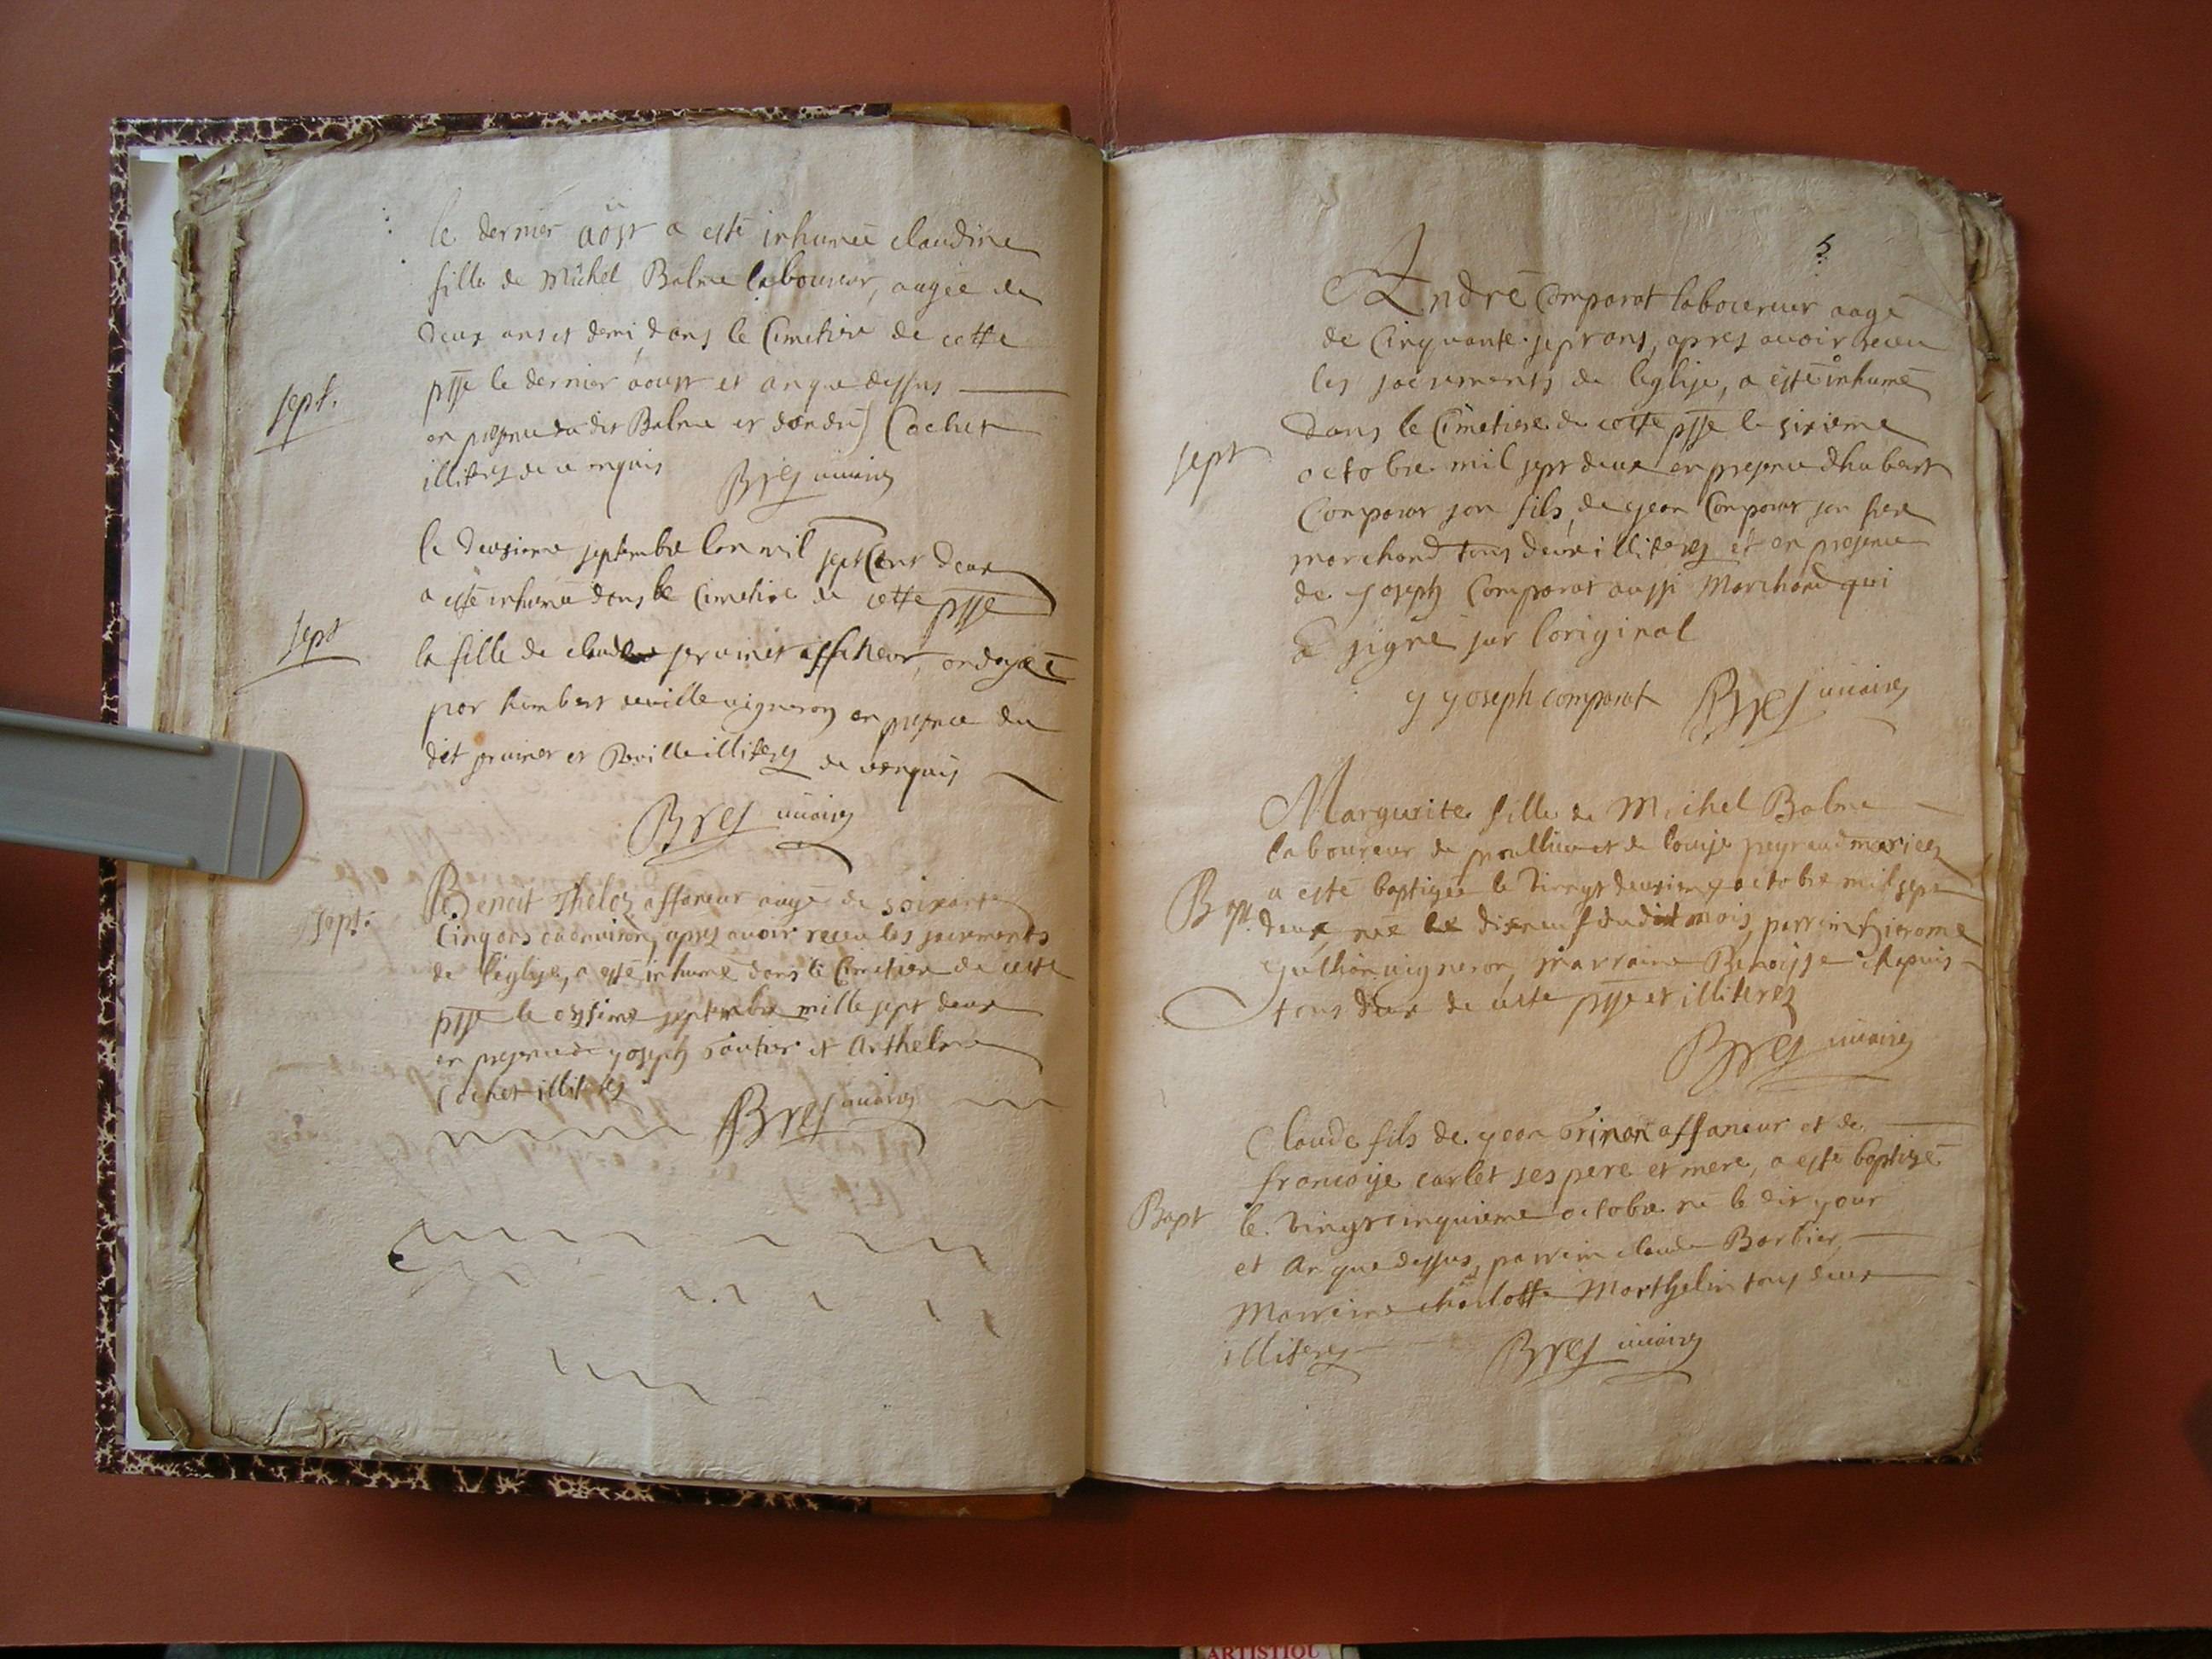 le dernier aöst a esté inhumée claudine
fille de Michel Balme laboureur, aagée de
deux ans et demi, dans le Cimetire de cette
psse le dernier aoust et an que dessus
sept.
en presence du dit Balme et dandré Cochet
illiteres de ce enquis Bres vicaire
le deusieme septembre lan mil sept Cent deux
a esté inhumée dans le Cimetire de cette psse
sept
la fille de claude affaneur, ondoyée
par humbert deville vigneron en presence du
dit et Deville illiteres de ce enquis
Bres vicaire
sept.
Benoit Theloz affaneur aagé de soixante
Cinq ans ou environ, apres avoir receu les sacrements
de l'église, a esté inhumé dans le Cimetiere de cette
psse le onsieme septembre mille sept deux
en presence de yoseph Gautier et Anthelme
Cochet illiteres
Bres vicaire
5
André Comparat laboureur aagé
de Cinquante sept ans, apres avoir receu
les sacrements de leglise, a esté inhumé
dans le Cimetiere de cette psse le sixieme
sept
octobre mil sept deux en presence dhubert
Comparat son fils, de yean Comparat son frere
marchand tous deux illiteres et en presence
de yoseph Comparat aussi Marchand qui
a signé sur loriginal
y yoseph comparat Bres vicaire
Marguerite fille de Michel Balme
laboureur de et de louise peyraud mariez
Bapt.
a esté baptisée le vingt deusieme octobre mil sept
deux née le disneuf du dit mois, parrein hierome
vigneron, marraine Benoisse
tous deux de cette psse et illiteres
Bres vicaire
Claude fils de yean affaneur et de
francoise carlet ses pere et mere, a esté baptisé
Bapt
le vingt cinquieme octobre né le dit your
et an que dessus, parrein claude Barbier,
Marreine charlotte Marthelin tous deux
illiteres Bres vicaire
ARTISTIQU